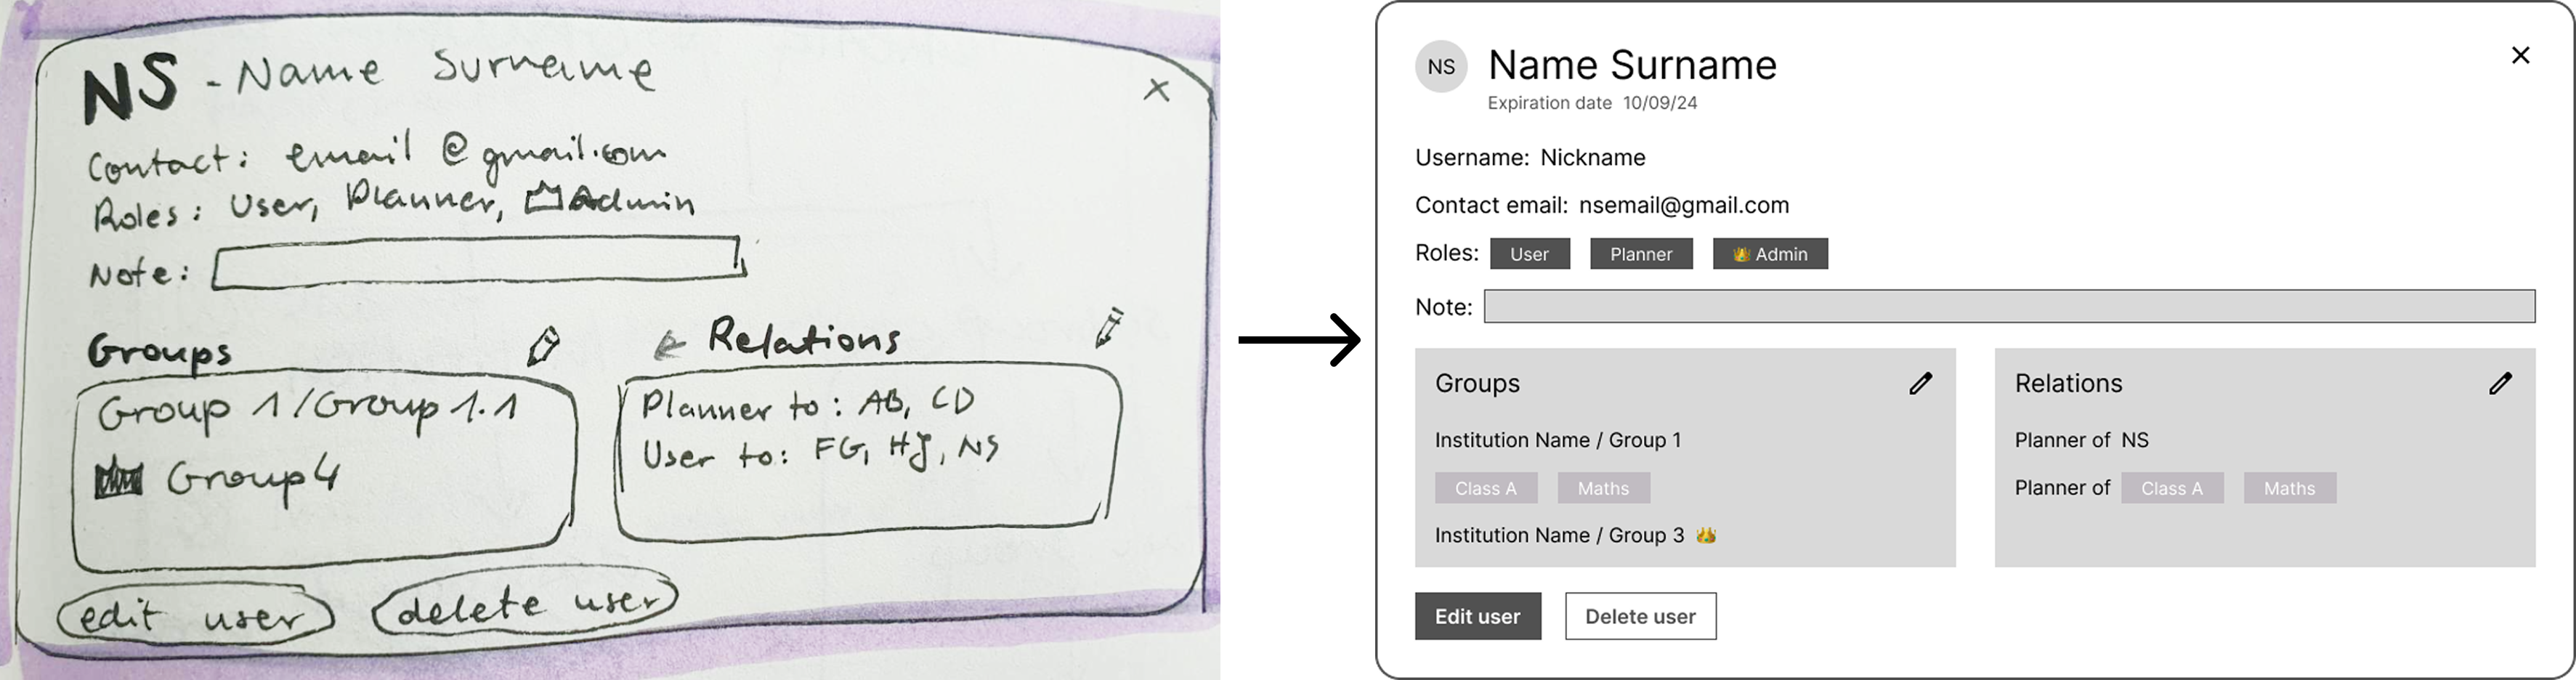 NS - Name Surname
×
Contact: email @ gmail.com
Roles: User, Planner, Admin
Note:
Groups
Group 1/Group 1.1
Group 4
Relations
Planner to: AB, CD
User to: FG, HJ, NS
edit user
delete user
NS
Name Surname
Expiration date 10/09/24
Username: Nickname
Contact email: nsemail@gmail.com
Roles: User Planner 👑 Admin
Note:
Groups
Institution Name / Group 1
Class A Maths
Institution Name / Group 3 👑
Relations
Planner of NS
Planner of Class A Maths
Edit user
Delete user